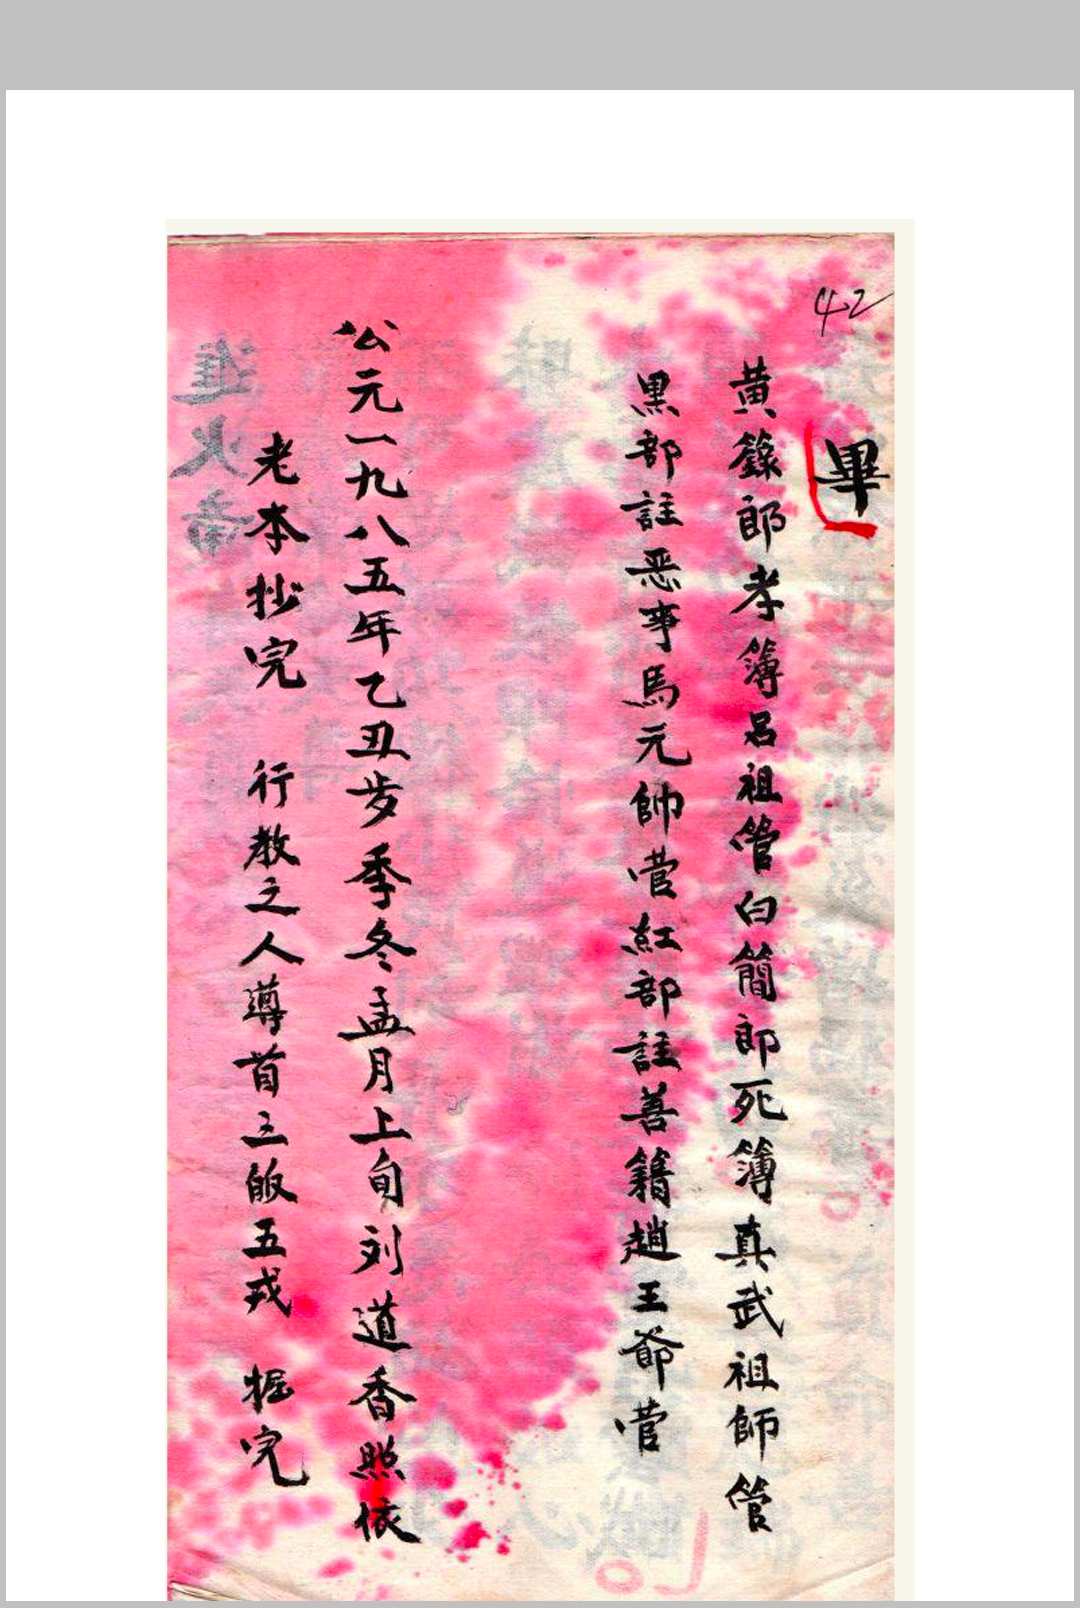 42
畢
黄籙郎孝簿呂祖管白簡郎死簿真武祖師管
黑部註恶事馬元帥管紅部註善籍趙王爺管
公元一九八五年乙丑岁季冬孟月上旬刘道香照依
老本抄完 行教之人尊首三皈五戎 握完